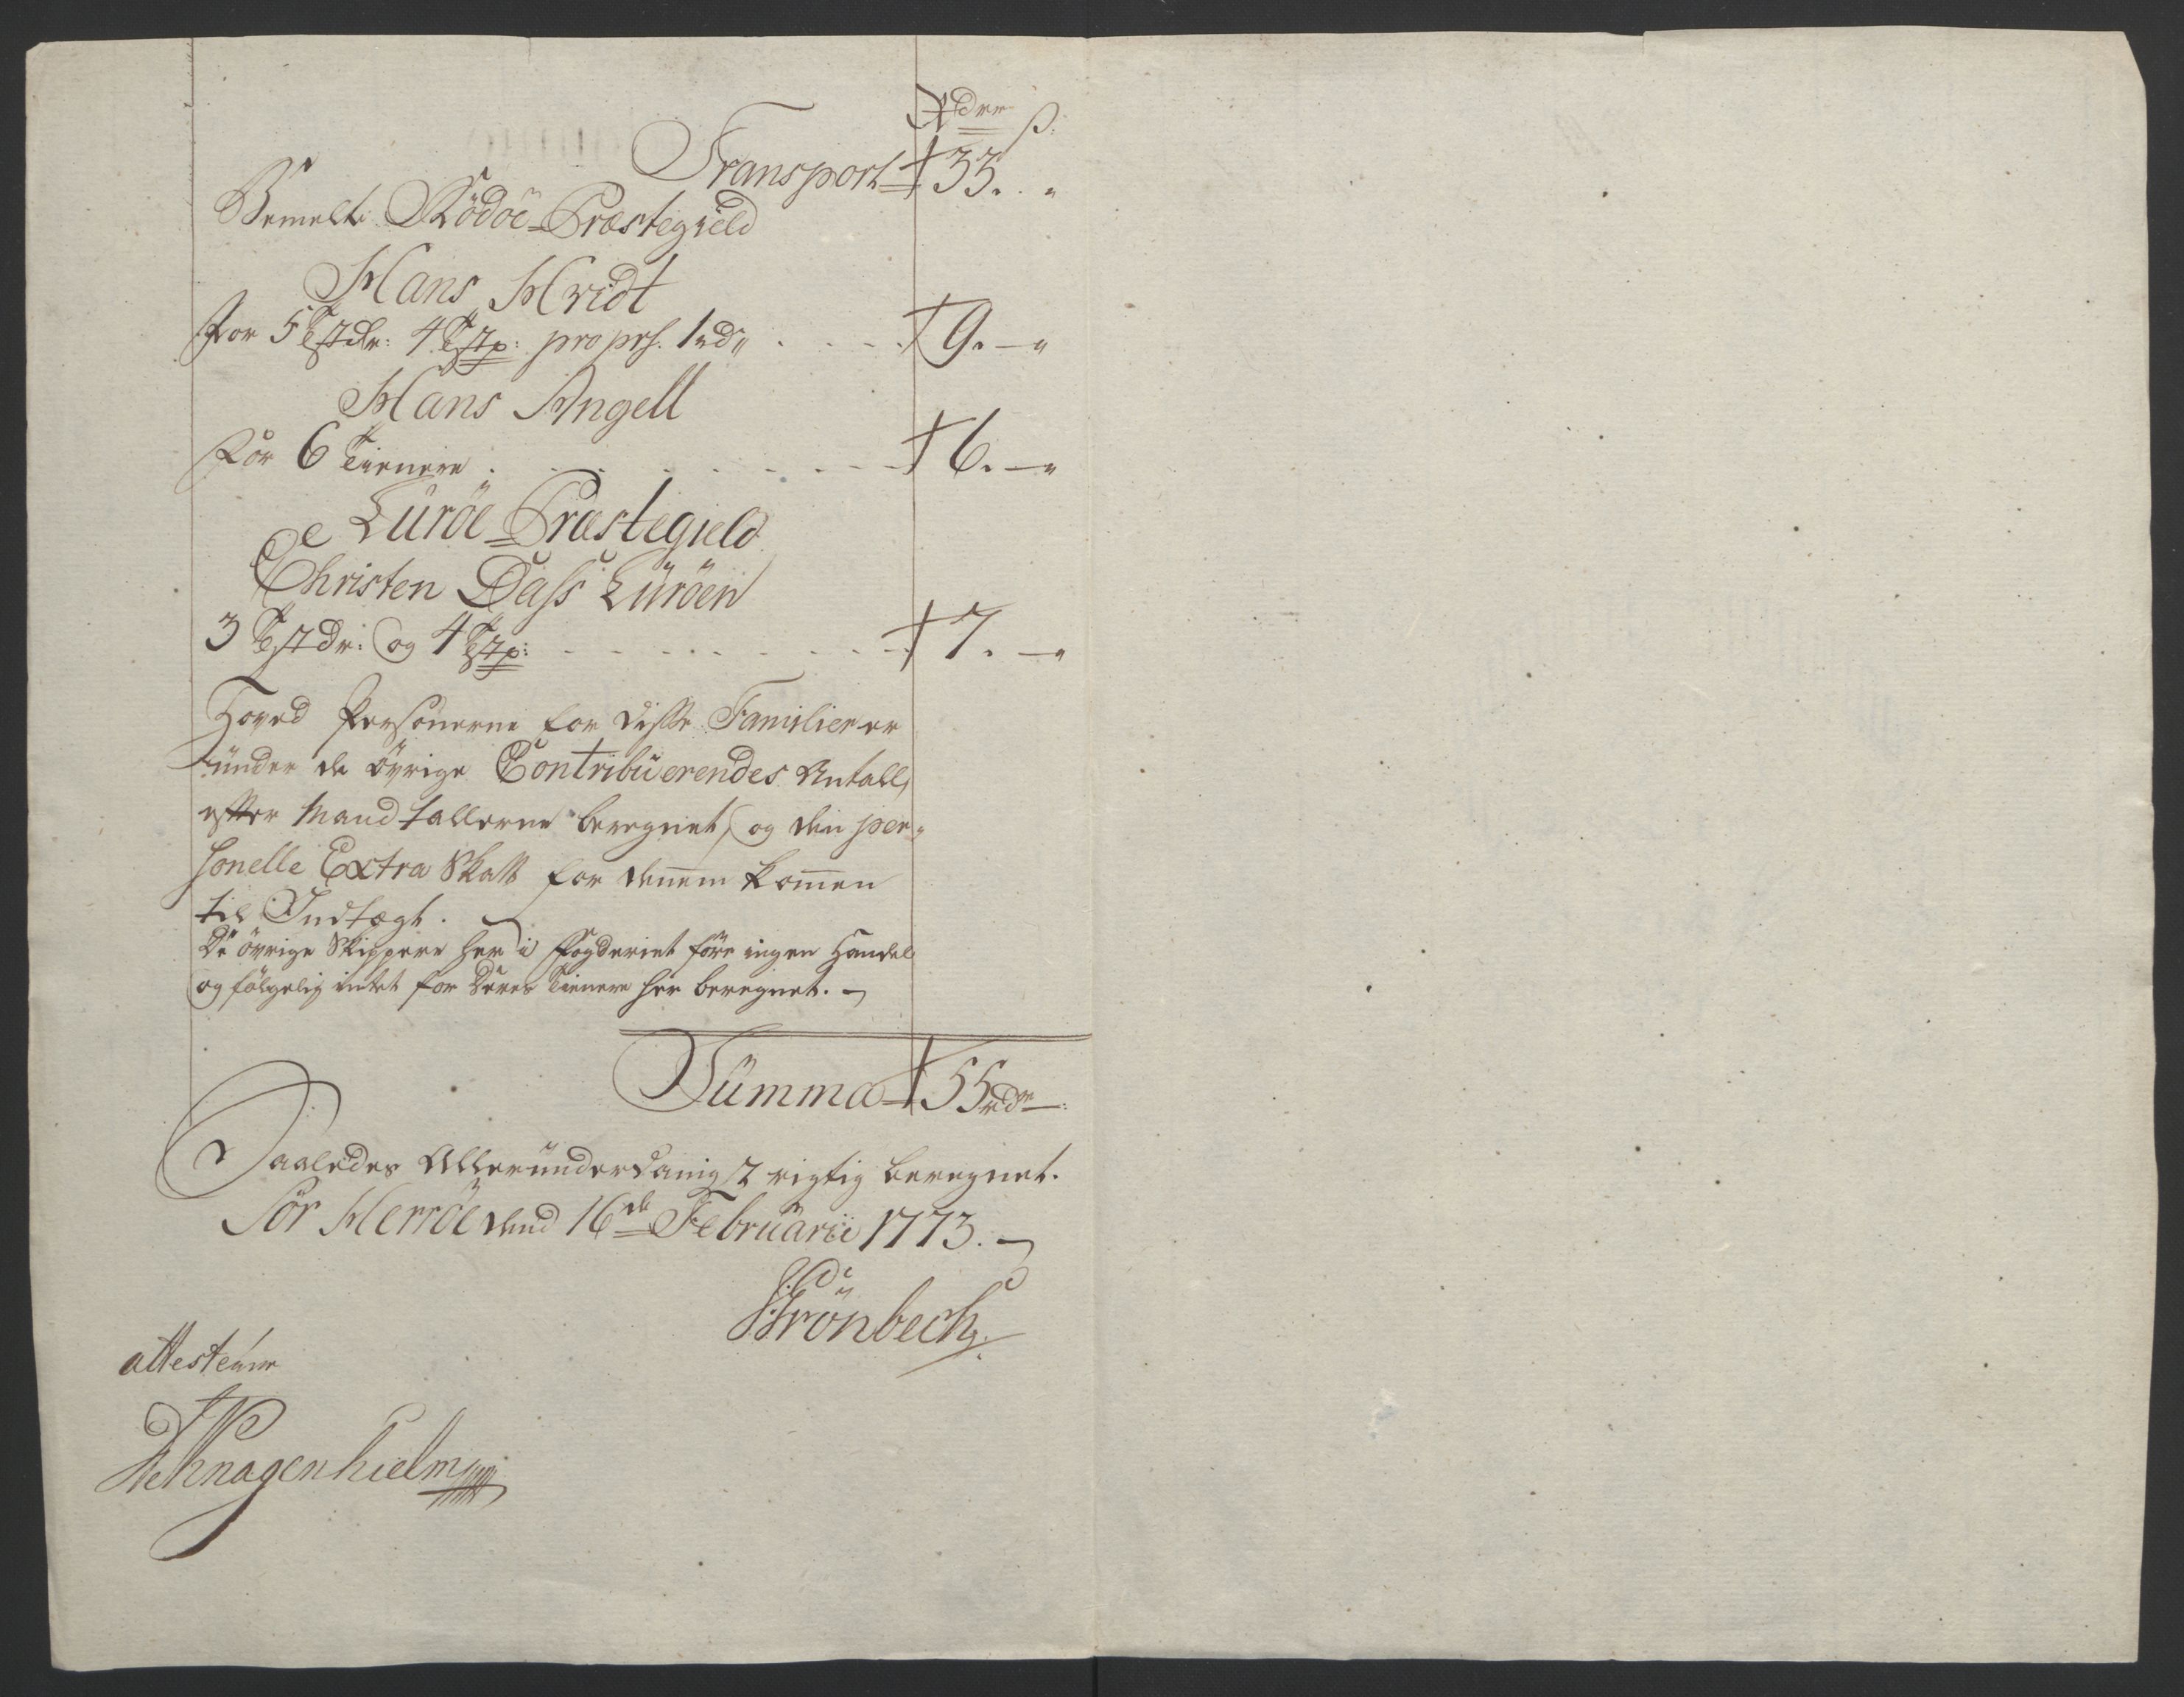 Rdr ß:
Transport 33. "
Bemelte Rödöe Præstegield
Hans Hvidt
For 5 Tiestdr: 4 Tiestp: pro pers. 1 rd" 9. — "
Hans Angell
För 6 Tienere 6. — "
Luröe Præstegield
Christen Dass Luröen
3 Tiestdr: og 4 Tiestp: 7. — "
Hoved Personerne for disse Familier er
under de övrige Contribuerendes Antall,
efter Mandtallerne beregnet, og den per-
sonelle Extra Skatt for dennem kommen
til Indtægt.
De övrige Skippere her i Fogderiet före ingen Handel
og fölgelig intet for Deres Tienere her beregnet. —
Summa 55 rdr —:
Saaledes Allerunderdanigst rigtig beregnet.
Sör Herröe dend 16de Februarii 1773. —
Grönbech
attesterer
Knagenhielm